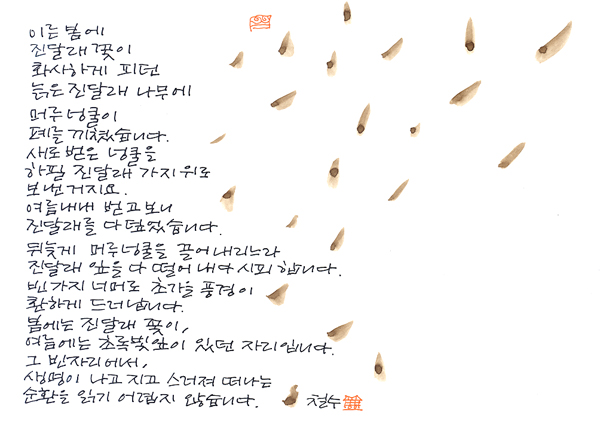 이른 봄에
진달래 꽃이
화사하게 피던
늙은 진달래 나무에
머루 넝쿨이
폐를 끼쳤습니다.
새로 벋은 넝쿨을
하필 진달래 가지 위로
보낸 거지요.
여름내내 벋고 보니
진달래를 다 덮었습니다.
뒤늦게 머루넝쿨을 끌어내리느라
진달래 잎을 다 떨어 내다시피 합니다.
빈 가지 너머로 초가을 풍경이
환하게 드러납니다.
봄에는 진달래 꽃이,
여름에는 초록빛 잎이 있던 자리입니다.
그 빈자리에서,
생명이 나고 지고 스러져 떠나는
순환을 읽기 어렵지 않습니다.
철수